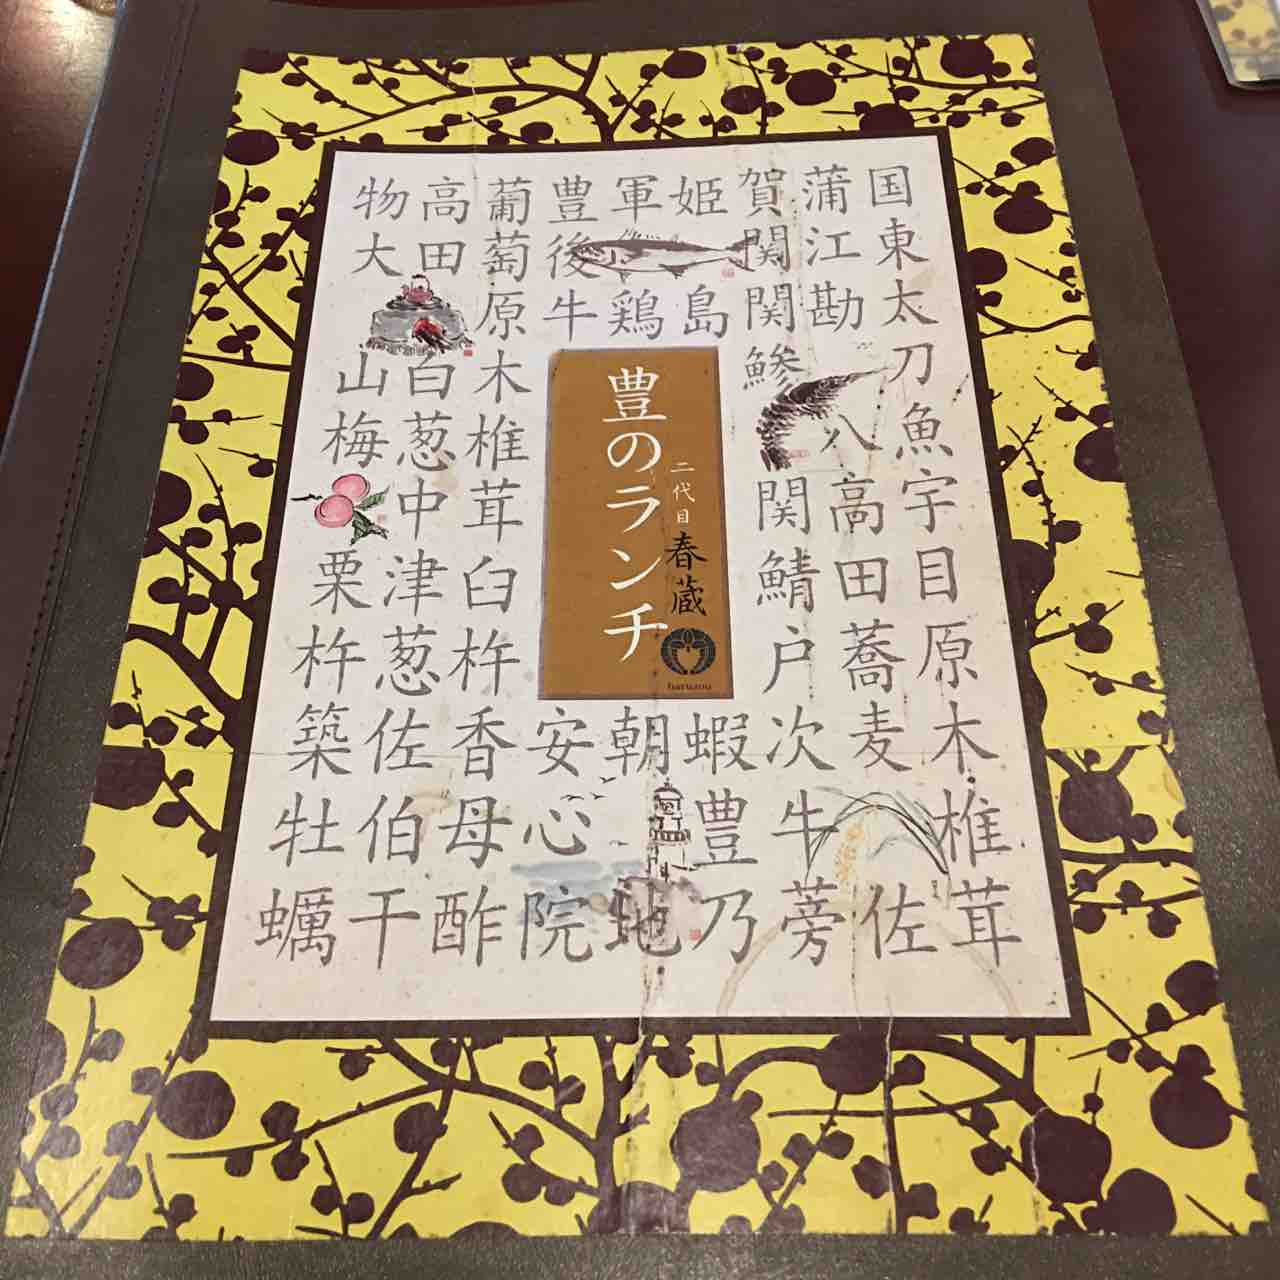 国東太刀魚宇目原木椎茸
蒲江勘八高田蕎麦佐
賀関関鯵関鯖戸次牛蒡
姫島蝦豊乃
軍鶏朝地
豊後牛安心院
葡萄原木椎茸臼杵香母酢
高田白葱中津葱佐伯干
物大山梅栗杵築牡蠣
豊のランチ
二代目春蔵
haruzou